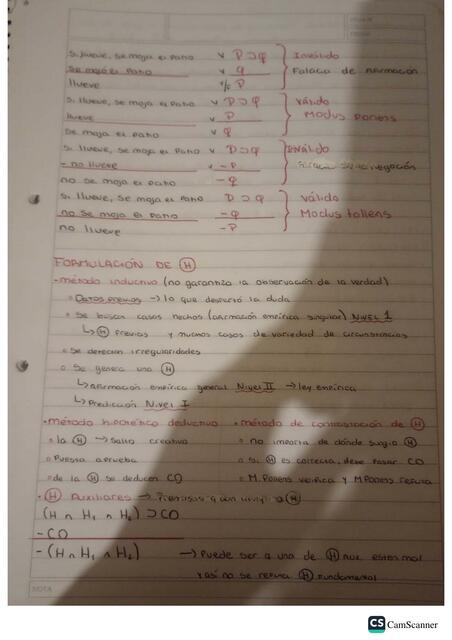 si llueve, se moja el patio v p ⊃ q Inválido
se moja el patio v q Falacia de afirmación
llueve v/o p
si llueve, se moja el patio v p ⊃ q válido
llueve v p Modus ponens
se moja el patio v q
si llueve, se moja el patio v p ⊃ q Inválido
- no llueve v -p negación
no se moja el patio -q
si llueve, se moja el patio p ⊃ q válido
no se moja el patio -q Modus tollens
no llueve -p
FORMULACIÓN DE (H)
• método inductivo (no garantiza la observación de la verdad)
Datos previos → lo que despertó la duda
Se buscan casos hechos (afirmación empírica singular) NIVEL 1
↳ (H) previas y muchos casos de variedad de circunstancias
Se detectan irregularidades
Se genera una (H)
↳ afirmación empírica general NIVEL II → ley empírica
↳ Predicción NIVEL I
• método hipotético deductivo • método de contrastación de (H)
la (H) → salto creativo no importa de dónde surgió (H)
Puesta a prueba si (H) es correcta, debe pasar CO
de la (H) se deducen CO M. Ponens verifica y M Ponens refuta
• (H) Auxiliares → a (H)
(H ∩ H₁ ∩ H₂) ⊃ CO
- CO
- (H ∩ H₁ ∩ H₂) → Puede ser q una de (H) aux esten mal
y así no se refuta (H) fundamental
NOTA
CS CamScanner